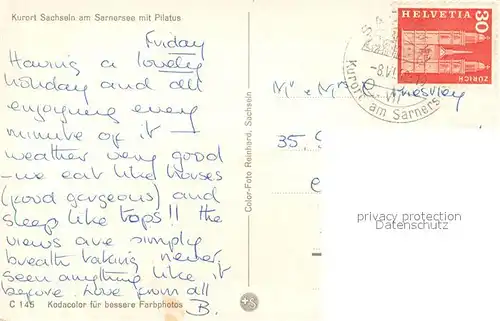 Kurort Sachseln am Sarnersee mit Pilatus
Friday
Having a lovely
holiday and all
enjoying every
minute of it —
weather very good
- we eat like horses
(food gorgeous) and
sleep like tops!! the
views are simply
breath taking never
seen anything like it
before. Love from all
B.
C 145 Kodacolor für bessere Farbphotos
Color-Foto Reinhard, Sachseln
HELVETIA
30
ZÜRICH
-8.VI
Kurort am Sarners
Mr & Mrs
35.
privacy protection
Datenschutz